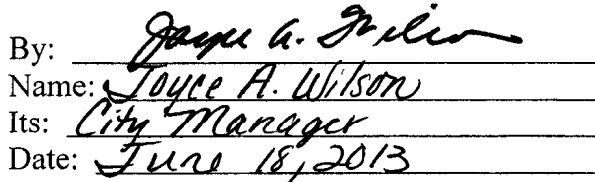 By: Joyce A. Wilson
Name: Joyce A. Wilson
Its: City Manager
Date: June 18, 2013